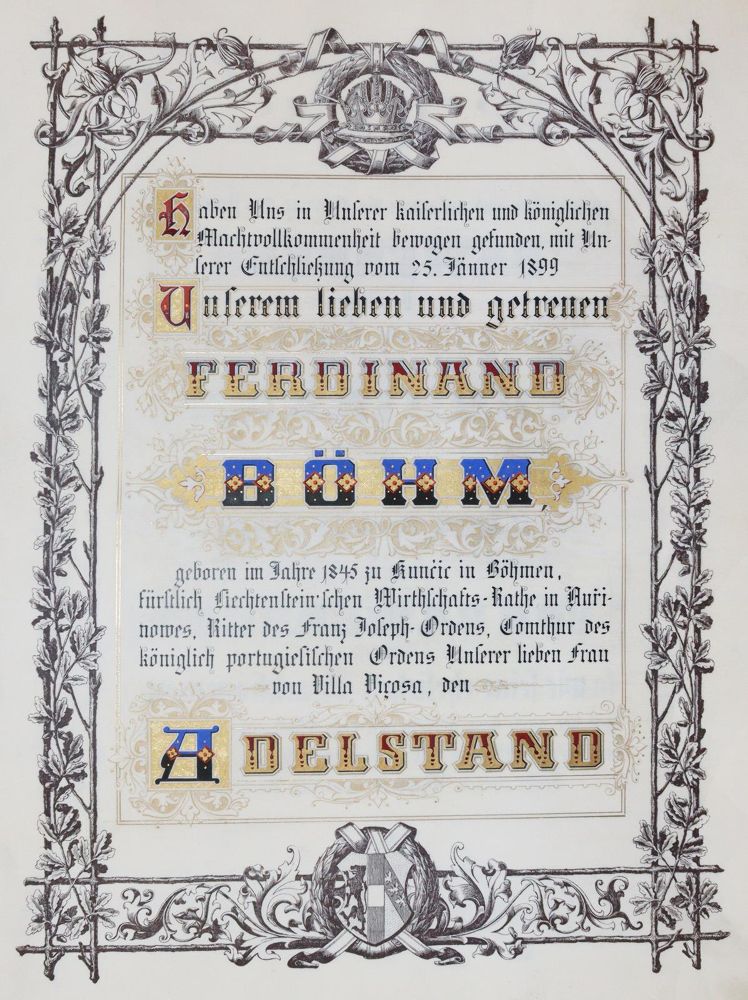 Haben Uns in Unserer kaiserlichen und königlichen
Machtvollkommenheit bewogen gefunden, mit Un-
serer Entschließung vom 25. Jänner 1899
Unserem lieben und getreuen
FERDINAND
BÖHM,
geboren im Jahre 1845 zu Kunčic in Böhmen,
fürstlich Liechtenstein'schen Wirthschafts-Rathe in Auři-
nowes, Ritter des Franz Joseph-Ordens, Comthur des
königlich portugiesischen Ordens Unserer lieben Frau
von Villa Viçosa, den
ADELSTAND